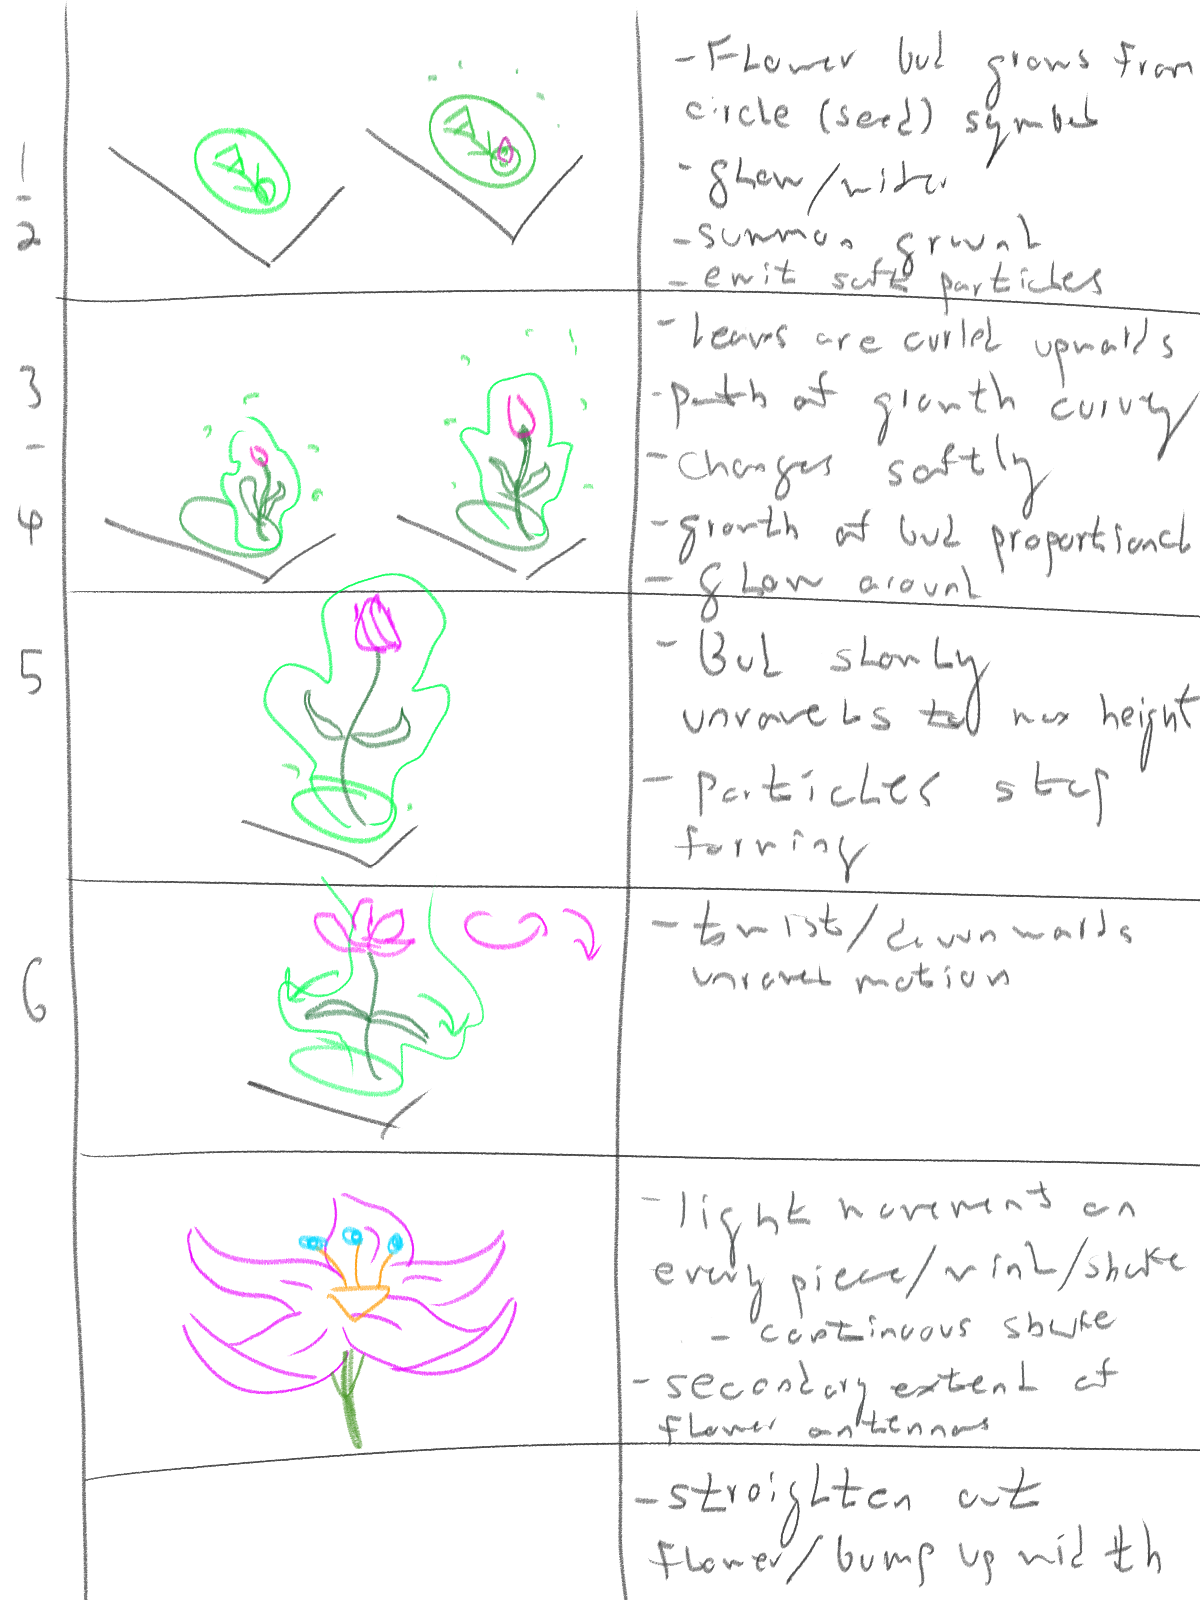 1
-
2
- Flower bud grows from
circle (seed) symbol
- glow/wider
- summon ground
- emit soft particles
3
-
4
- leaves are curled upwards
- path of growth curvey
- changes softly
- growth of bud proportional
- glow around
5
- Bud slowly
unravels to max height
- particles stop
forming
6
- twist/downwards
unravel motion
- light movement on
every piece/wind/shake
- continuous shake
- secondary extend of
flower antennas
- straighten out
flower/bump up width